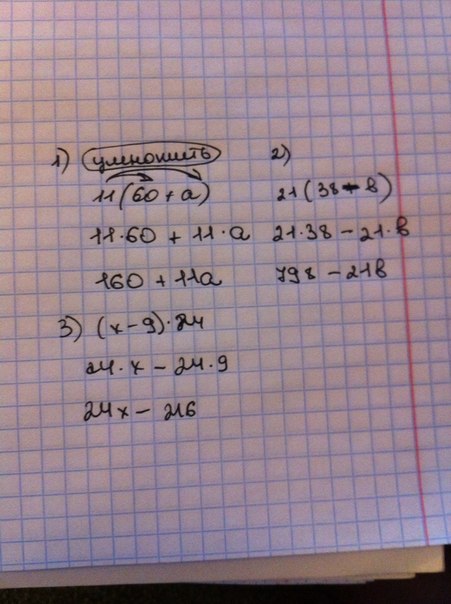 1) умножить
11(60+a)
11·60 + 11·a
160 + 11a
2)
21(38-в)
21·38 - 21·в
798 - 21в
3) (x-9)·24
24·x - 24·9
24x - 216